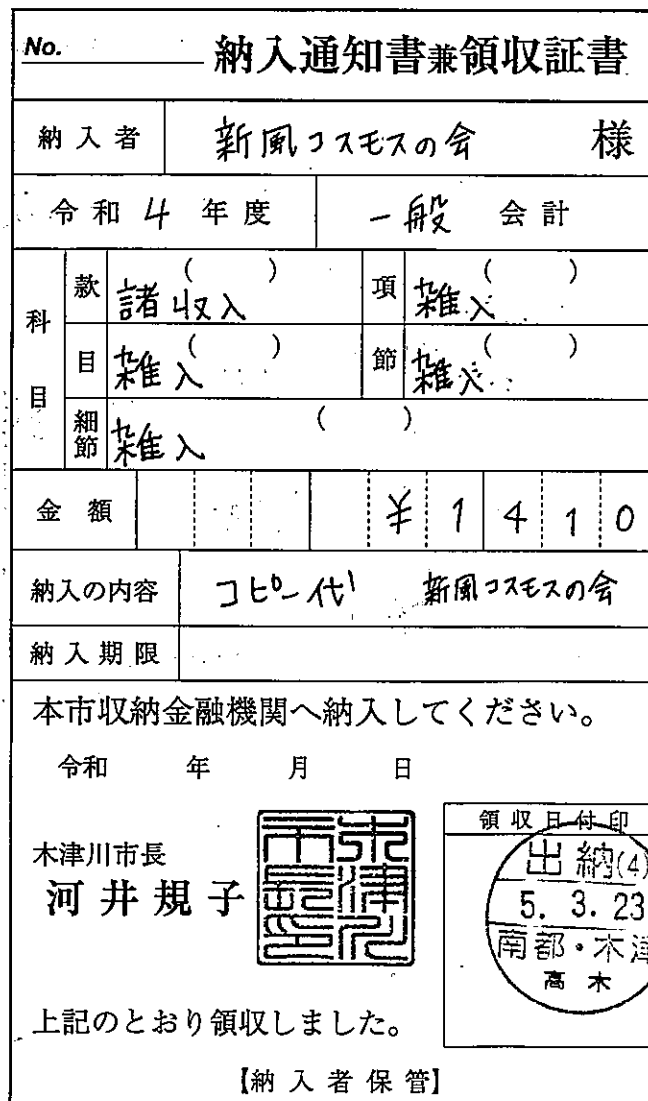 No. 納入通知書兼領収証書
納入者 新風コスモスの会 様
令和 4 年度 一般 会計
科目 款 諸収入 ( ) 項 雑入 ( )
目 雑入 ( ) 節 雑入 ( )
細節 雑入 ( )
金額 ¥1410
納入の内容 コピー代 新風コスモスの会
納入期限
本市収納金融機関へ納入してください。
令和 年 月 日
領収日付印
木津川市長
河井規子
木津川市長之印
出納(4)
5. 3. 23
南都・木津
高木
上記のとおり領収しました。
【納入者保管】